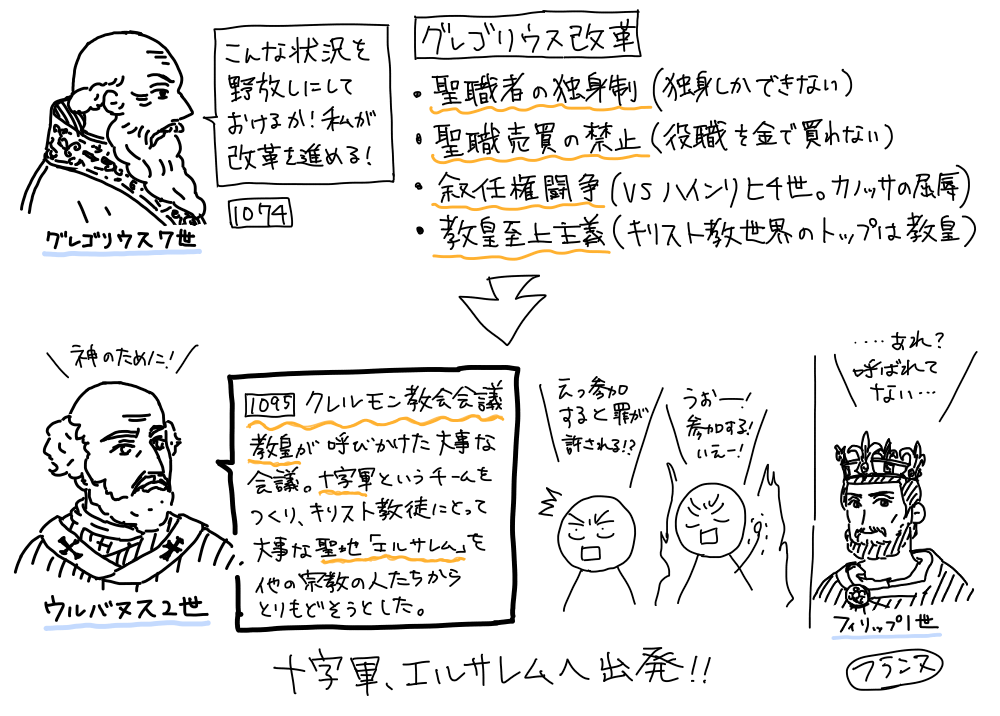 こんな状況を
野放しにして
おけるか!私が
改革を進める!
1074
グレゴリウス7世
グレゴリウス改革
・聖職者の独身制(独身しかできない)
・聖職売買の禁止(役職を金で買れない)
・叙任権闘争(VSハインリヒ4世。カノッサの屈辱)
・教皇至上主義(キリスト教世界のトップは教皇)
神のために!
ウルバヌス2世
1095 クレルモン教会会議
教皇が呼びかけた大事な
会議。十字軍というチームを
つくり、キリスト教徒にとって
大事な聖地「エルサレム」を
他の宗教の人たちから
とりもどそうとした。
えっ参加
すると罪が
許される!?
うおー!
参加する!
いえー!
‥‥あれ?
呼ばれて
ない…
フィリップ1世
フランス
十字軍、エルサレムへ出発!!